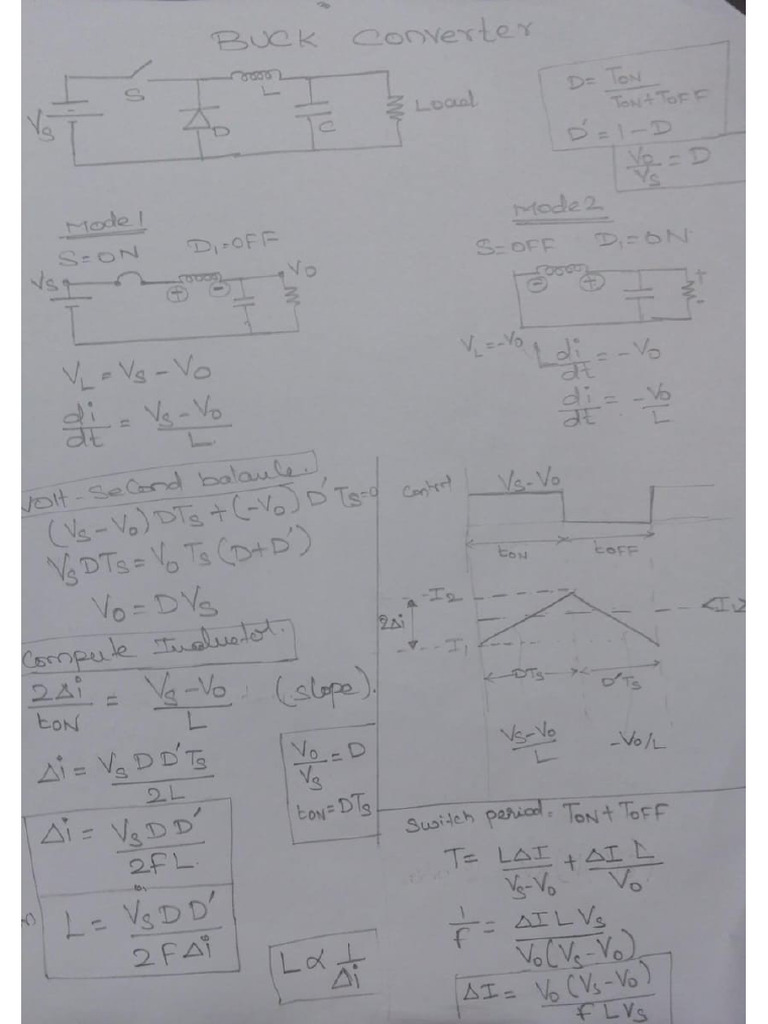 BUCK Converter
S
L
Vs
D
C
Load
D = TON / TON+TOFF
D' = 1 - D
Vo/Vs = D
Mode 1
S=ON D1=OFF
Vs
+ -
Vo
VL = Vs - Vo
di/dt = Vs - Vo / L
Mode 2
S=OFF D1=ON
- +
+
-
VL=-Vo
L di/dt = -Vo
di/dt = -Vo/L
Volt-Second balance.
(Vs-Vo) DTs + (-Vo) D'Ts=0
VsDTs = Vo Ts (D+D')
Vo = DVs
Compute Inductor.
2Δi / tON = Vs-Vo / L (slope).
Δi = Vs D D' Ts / 2L
Δi = Vs D D' / 2fL.
L = Vs D D' / 2FΔi
Vo/Vs = D
tON = DTs
L ∝ 1/Δi
Control
Vs-Vo
tON tOFF
I2
2Δi
I1
DTs D'Ts
Vs-Vo / L
-Vo/L
Switch period = TON + TOFF
T = LΔI / Vs-Vo + ΔI L / Vo
1/f = ΔI L Vs / Vo(Vs-Vo)
ΔI = Vo (Vs-Vo) / f L Vs